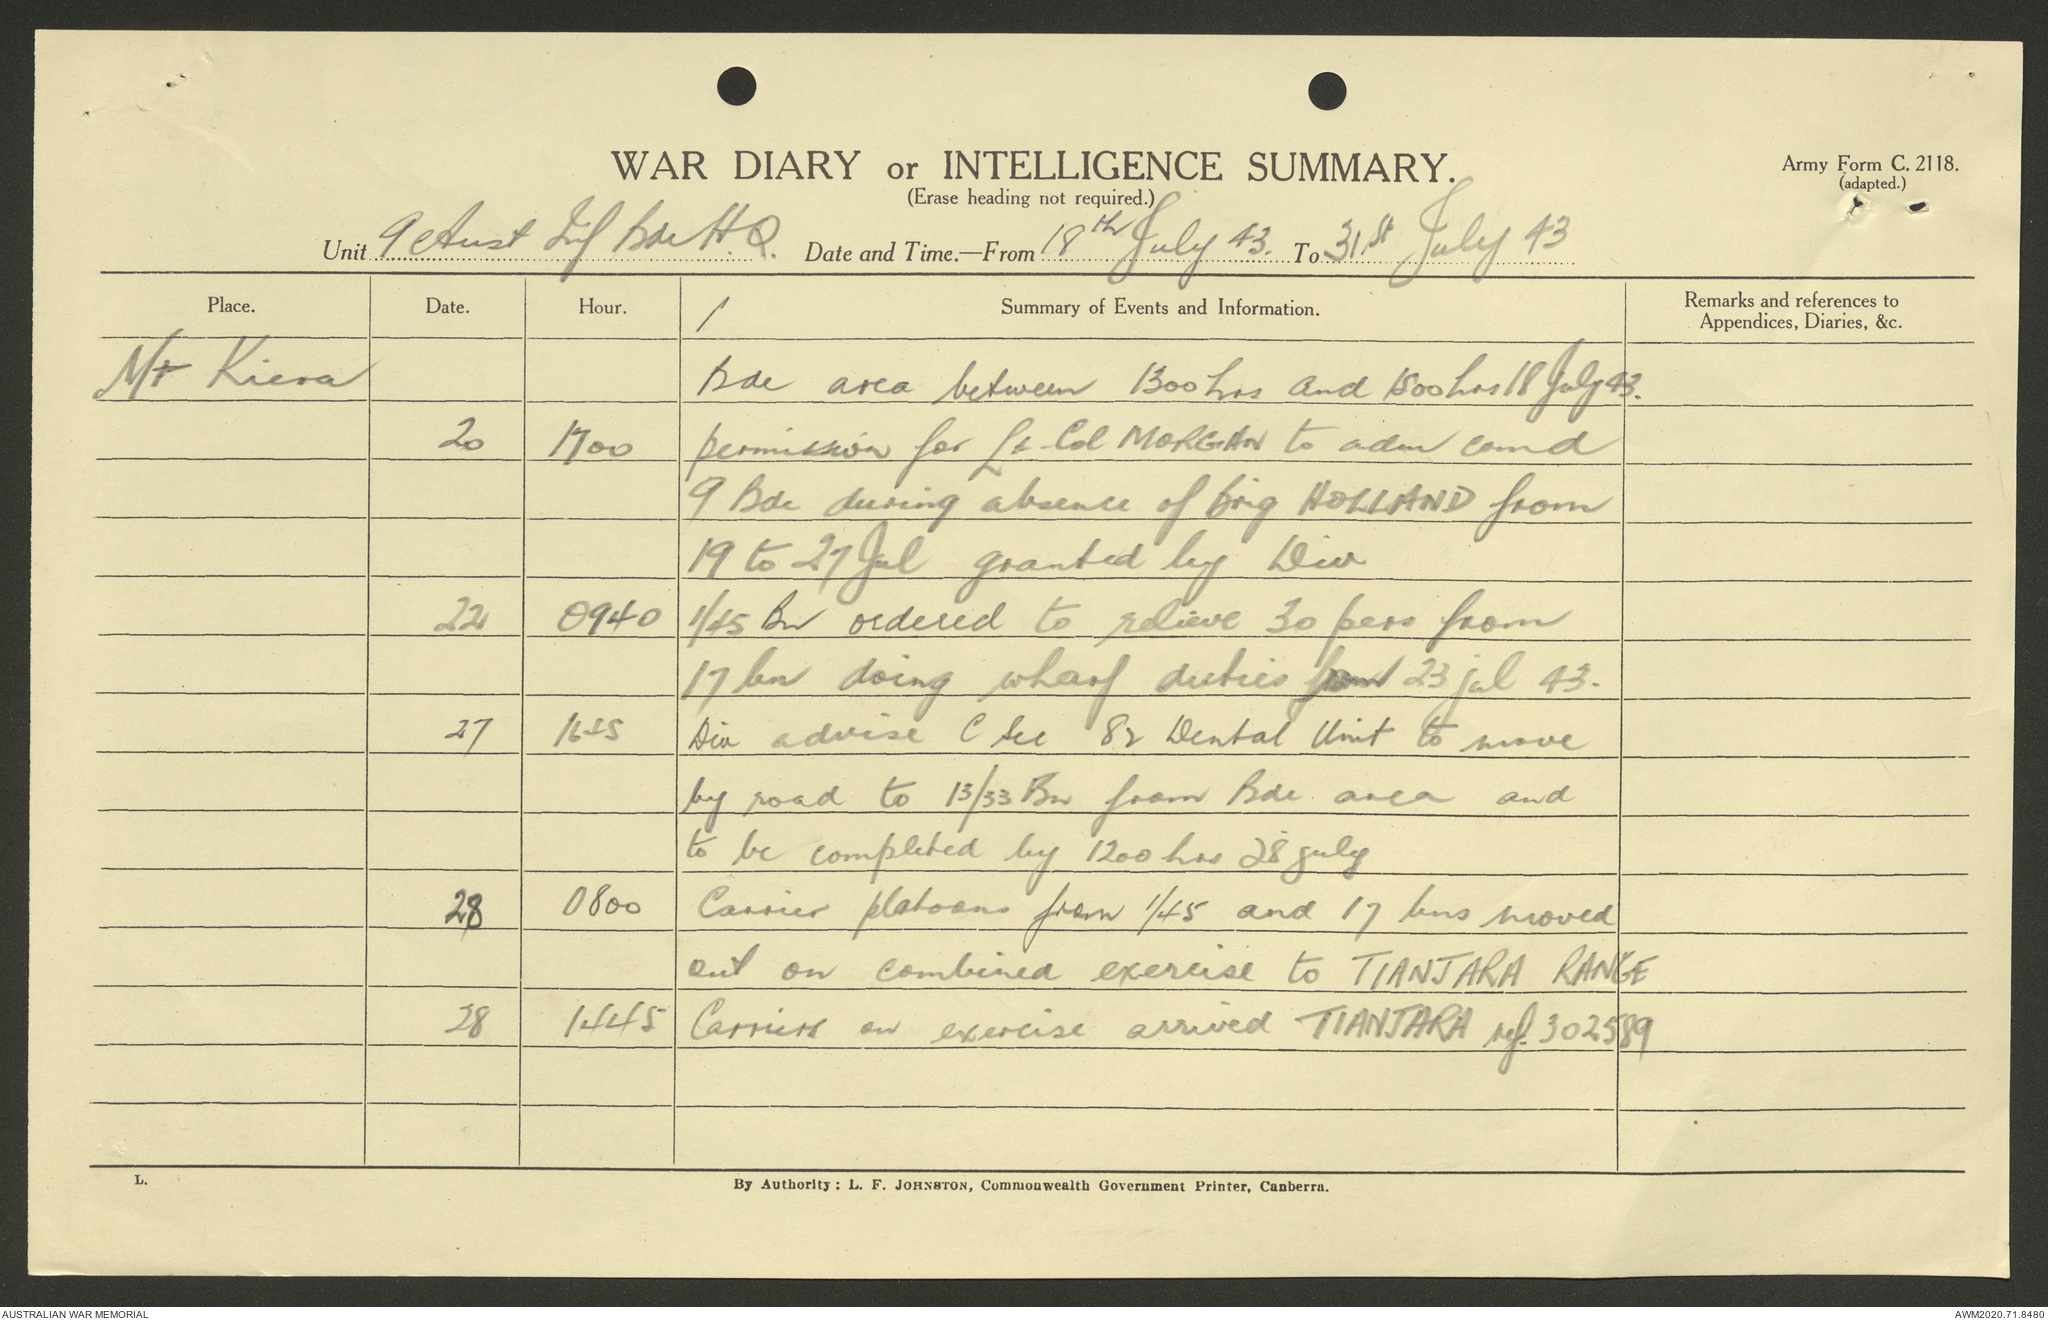 WAR DIARY or INTELLIGENCE SUMMARY.
Army Form C. 2118.
(adapted.)
(Erase heading not required.)
Unit 9 Aust Inf Bde H.Q. Date and Time.—From 18th July 43. To 31st July 43
Place. Date. Hour. Summary of Events and Information. Remarks and references to
Appendices, Diaries, &c.
Mt Kiera Bde area between 1300 hrs and 1500 hrs 18 July 43.
20 1700 permission for Lt Col MORGAN to adm comd
9 Bde during absence of Brig HOLLAND from
19 to 27 Jul granted by Div
22 0940 1/45 Bn ordered to relieve 30 pers from
17 bn doing wharf duties from 23 jul 43.
27 1645 Div advise C Sec 82 Dental Unit to move
by road to 13/33 Bn from Bde area and
to be completed by 1200 hrs 28 july
28 0800 Carrier platoons from 1/45 and 17 bns moved
out on combined exercise to TIANJARA RANGE
28 1445 Carriers on exercise arrived TIANJARA ref. 302589
L.
By Authority: L. F. JOHNSTON, Commonwealth Government Printer, Canberra.
AUSTRALIAN WAR MEMORIAL
AWM2020.71.8480